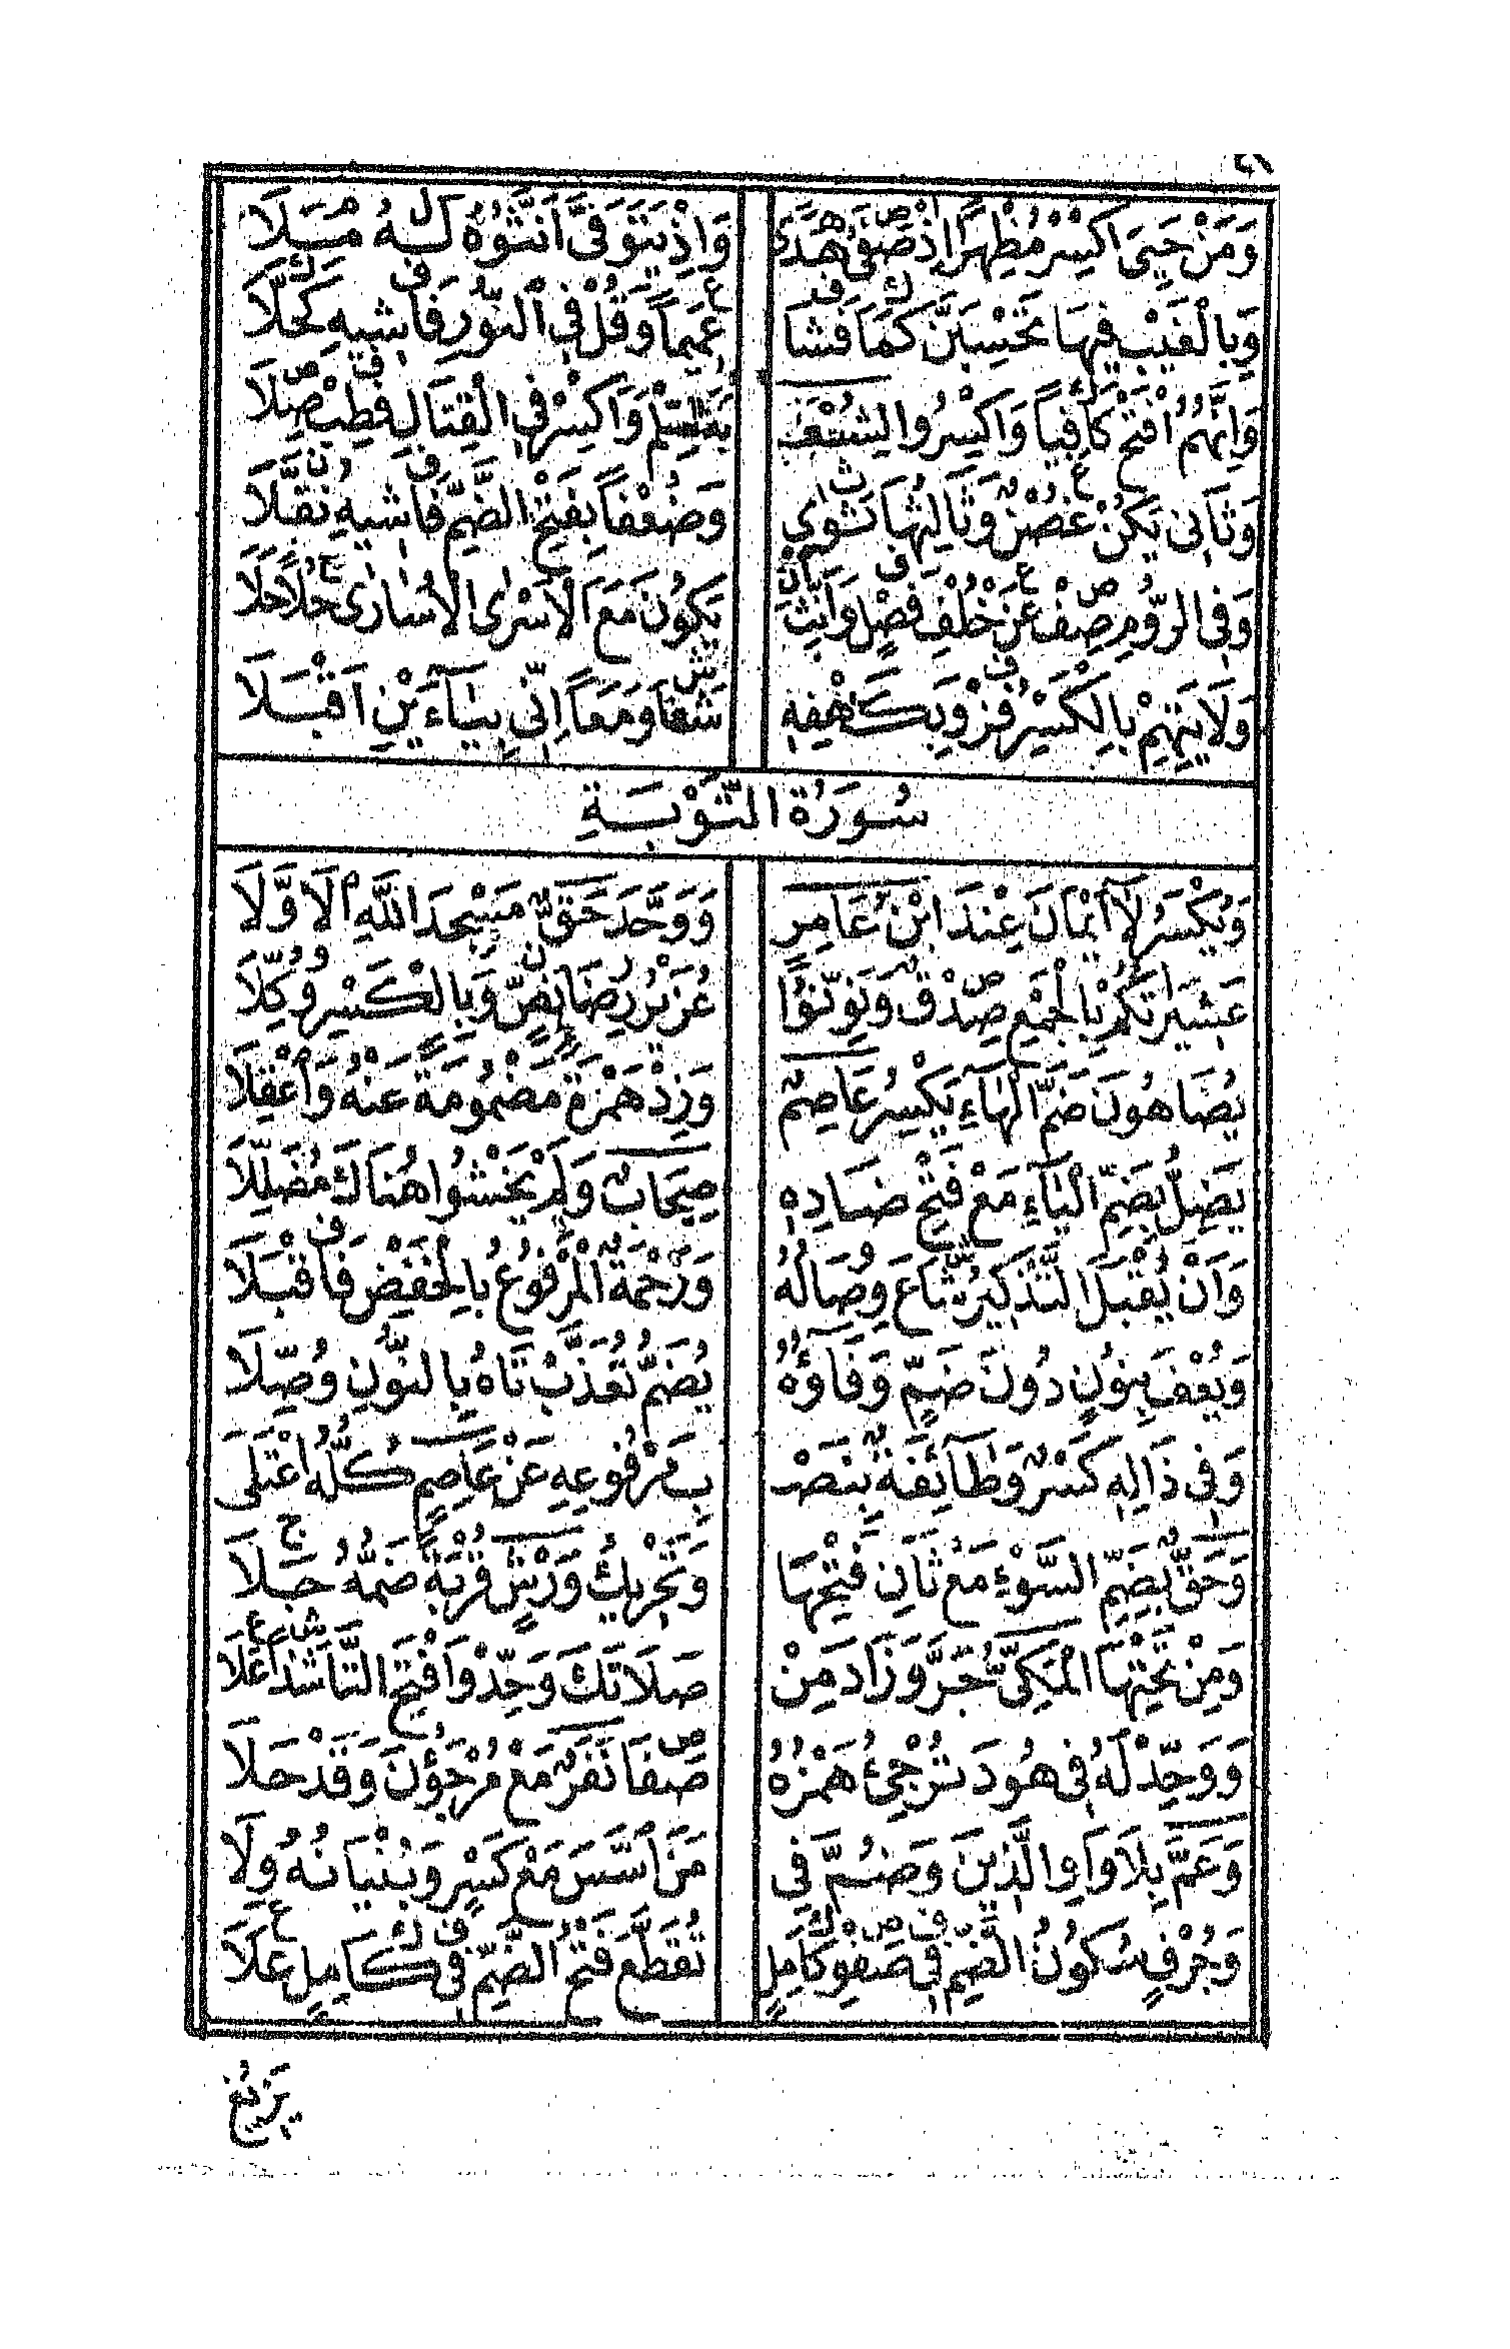 وَمَنْ حَيِيَ اكْسِرْ مُظْهِرًا اِذْ صَفَى هُدًى وَاِذْ يَتَوَفَّى اَنِّثُوهُ لَهُ مُلَا
وَبِالْغَيْبِ فِيهَا تَحْسَبَنَّ كَمَا فَشَا عَمِيمًا وَقُلْ فِى النُّورِ فَاشِيهِ كَحَّلَا
وَاِنَّهُمُ افْتَحْ كَافِيًا وَاكْسِرُوا لِشُعْبَةَ السَّلْمِ وَاكْسِرْ فِى الْقِتَالِ فَطِبْ صِلَا
وَثَانِى يَكُنْ غُصْنٌ وَثَالِثُهَا ثَوٰى وَضُعْفًا بِفَتْحِ الضَّمِّ فَاشِيهِ نُفِّلَا
وَفِى الرُّومِ صِفْ عَنْ خُلْفِ فَصْلٍ وَاَنِّثَ اَنْ يَكُونَ مَعَ الْاَسْرٰى الْاُسَارٰى حُلًا حَلَا
وَلَايَتِهِمْ بِالْكَسْرِ فُزْ وَبِكَهْفِهِ شَفَا وَمَعًا اِنِّى بِيَاءَيْنِ اَقْبَلَا
سُورَةُ التَّوْبَةِ
وَيُكْسَرُ لَا اَيْمَانَ عِنْدَ ابْنِ عَامِرٍ وَوَحَّدَ حَقٌّ مَسْجِدَ اللّٰهِ الْاَوَّلَا
عَشِيرَاتُكُمْ بِالْجَمْعِ صِدْقٌ وَنَوِّنُوا عُزَيْرُ رِضَا نَصٍّ وَبِالْكَسْرِ وُكِّلَا
يُضَاهُونَ ضَمَّ الْهَاءِ يَكْسِرُ عَاصِمٌ وَزِدْ هَمْزَةً مَضْمُومَةً عَنْهُ وَاعْقِلَا
يَضِلُّ بِضَمِّ الْيَاءِ مَعْ فَتْحِ ضَادِهِ صِحَابٌ وَلَمْ يَخْشَوْا هُنَاكَ مُضَلِّلَا
وَاَنْ يُقْبَلَ التَّذْكِيرُ شَاعَ وِصَالُهُ وَرَحْمَةٌ الْمَرْفُوعُ بِالْخَفْضِ فَاقْبَلَا
وَيُعْفَ بِنُونٍ دُونَ ضَمٍّ وَفَاؤُهُ يُضَمُّ تُعَذَّبْ تَاهُ بِالنُّونِ وُصِّلَا
وَفِى ذَالِهِ كَسْرٌ وَطَائِفَةٌ بِنَصْبِ مَرْفُوعِهِ عَنْ عَاصِمٍ كُلُّهُ اعْتَلَى
وَحَقٌّ بِضَمِّ السَّوْءِ مَعْ ثَانِ فَتْحِهَا وَتَحْرِيكُ وَرْشٍ قُرْبَةٌ ضَمُّهُ جَلَا
وَمِنْ تَحْتِهَا الْمَكِّىُّ جَرَّ وَزَادَ مِنْ صَلَاتَكَ وَحِّدْ وَافْتَحِ التَّا شَذًا عَلَا
وَوَحِّدْ لَهُ فِى هُودَ تُرْجِئُ هَمْزُهُ صَفَا نَفَرٌ مَعْ مُرْجَؤُنَ وَقَدْ حَلَا
وَعَمَّ بِلَا وَاوِ الَّذِينَ وَضُمَّ فِى مَنَ اَسَّسَ مَعْ كَسْرٍ وَبُنْيَانُهُ وِلَا
وَجُرْفٍ سُكُونُ الضَّمِّ فِى صَفْوِ كَامِلٍ تُقَطَّعَ فَتْحُ الضَّمِّ فِى كَامِلٍ عَلَا
يَزِيغُ